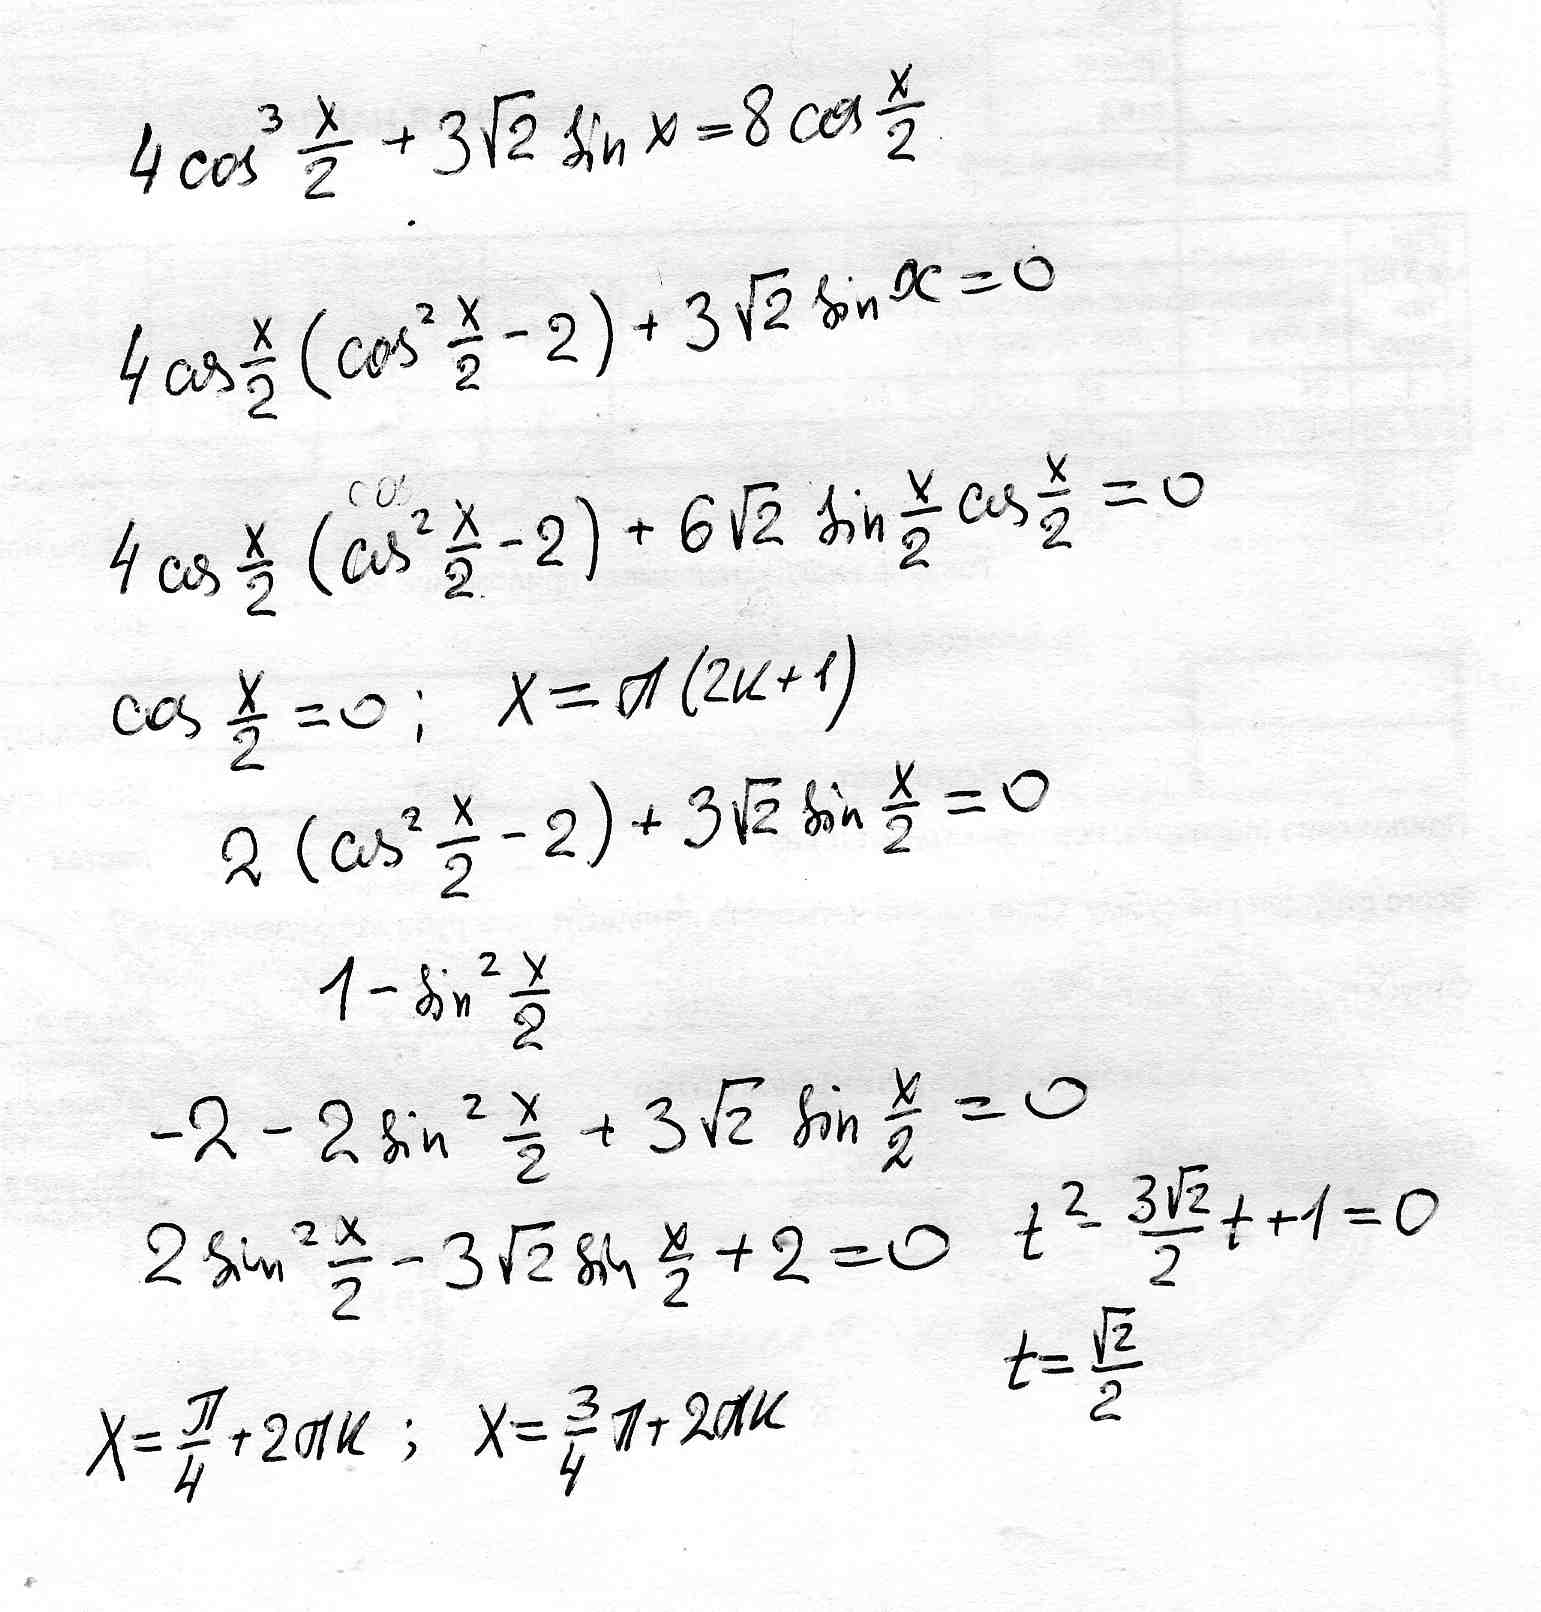 4 cos³ x/2 + 3√2 sin x = 8 cos x/2
4 cos x/2 (cos² x/2 - 2) + 3√2 sin x = 0
cos
4 cos x/2 (cos² x/2 - 2) + 6√2 sin x/2 cos x/2 = 0
cos x/2 = 0; x = π(2k+1)
2 (cos² x/2 - 2) + 3√2 sin x/2 = 0
1 - sin² x/2
-2 - 2 sin² x/2 + 3√2 sin x/2 = 0
2 sin² x/2 - 3√2 sin x/2 + 2 = 0
t² - 3√2/2 t + 1 = 0
t = √2/2
x = π/4 + 2πk; x = 3/4 π + 2πk